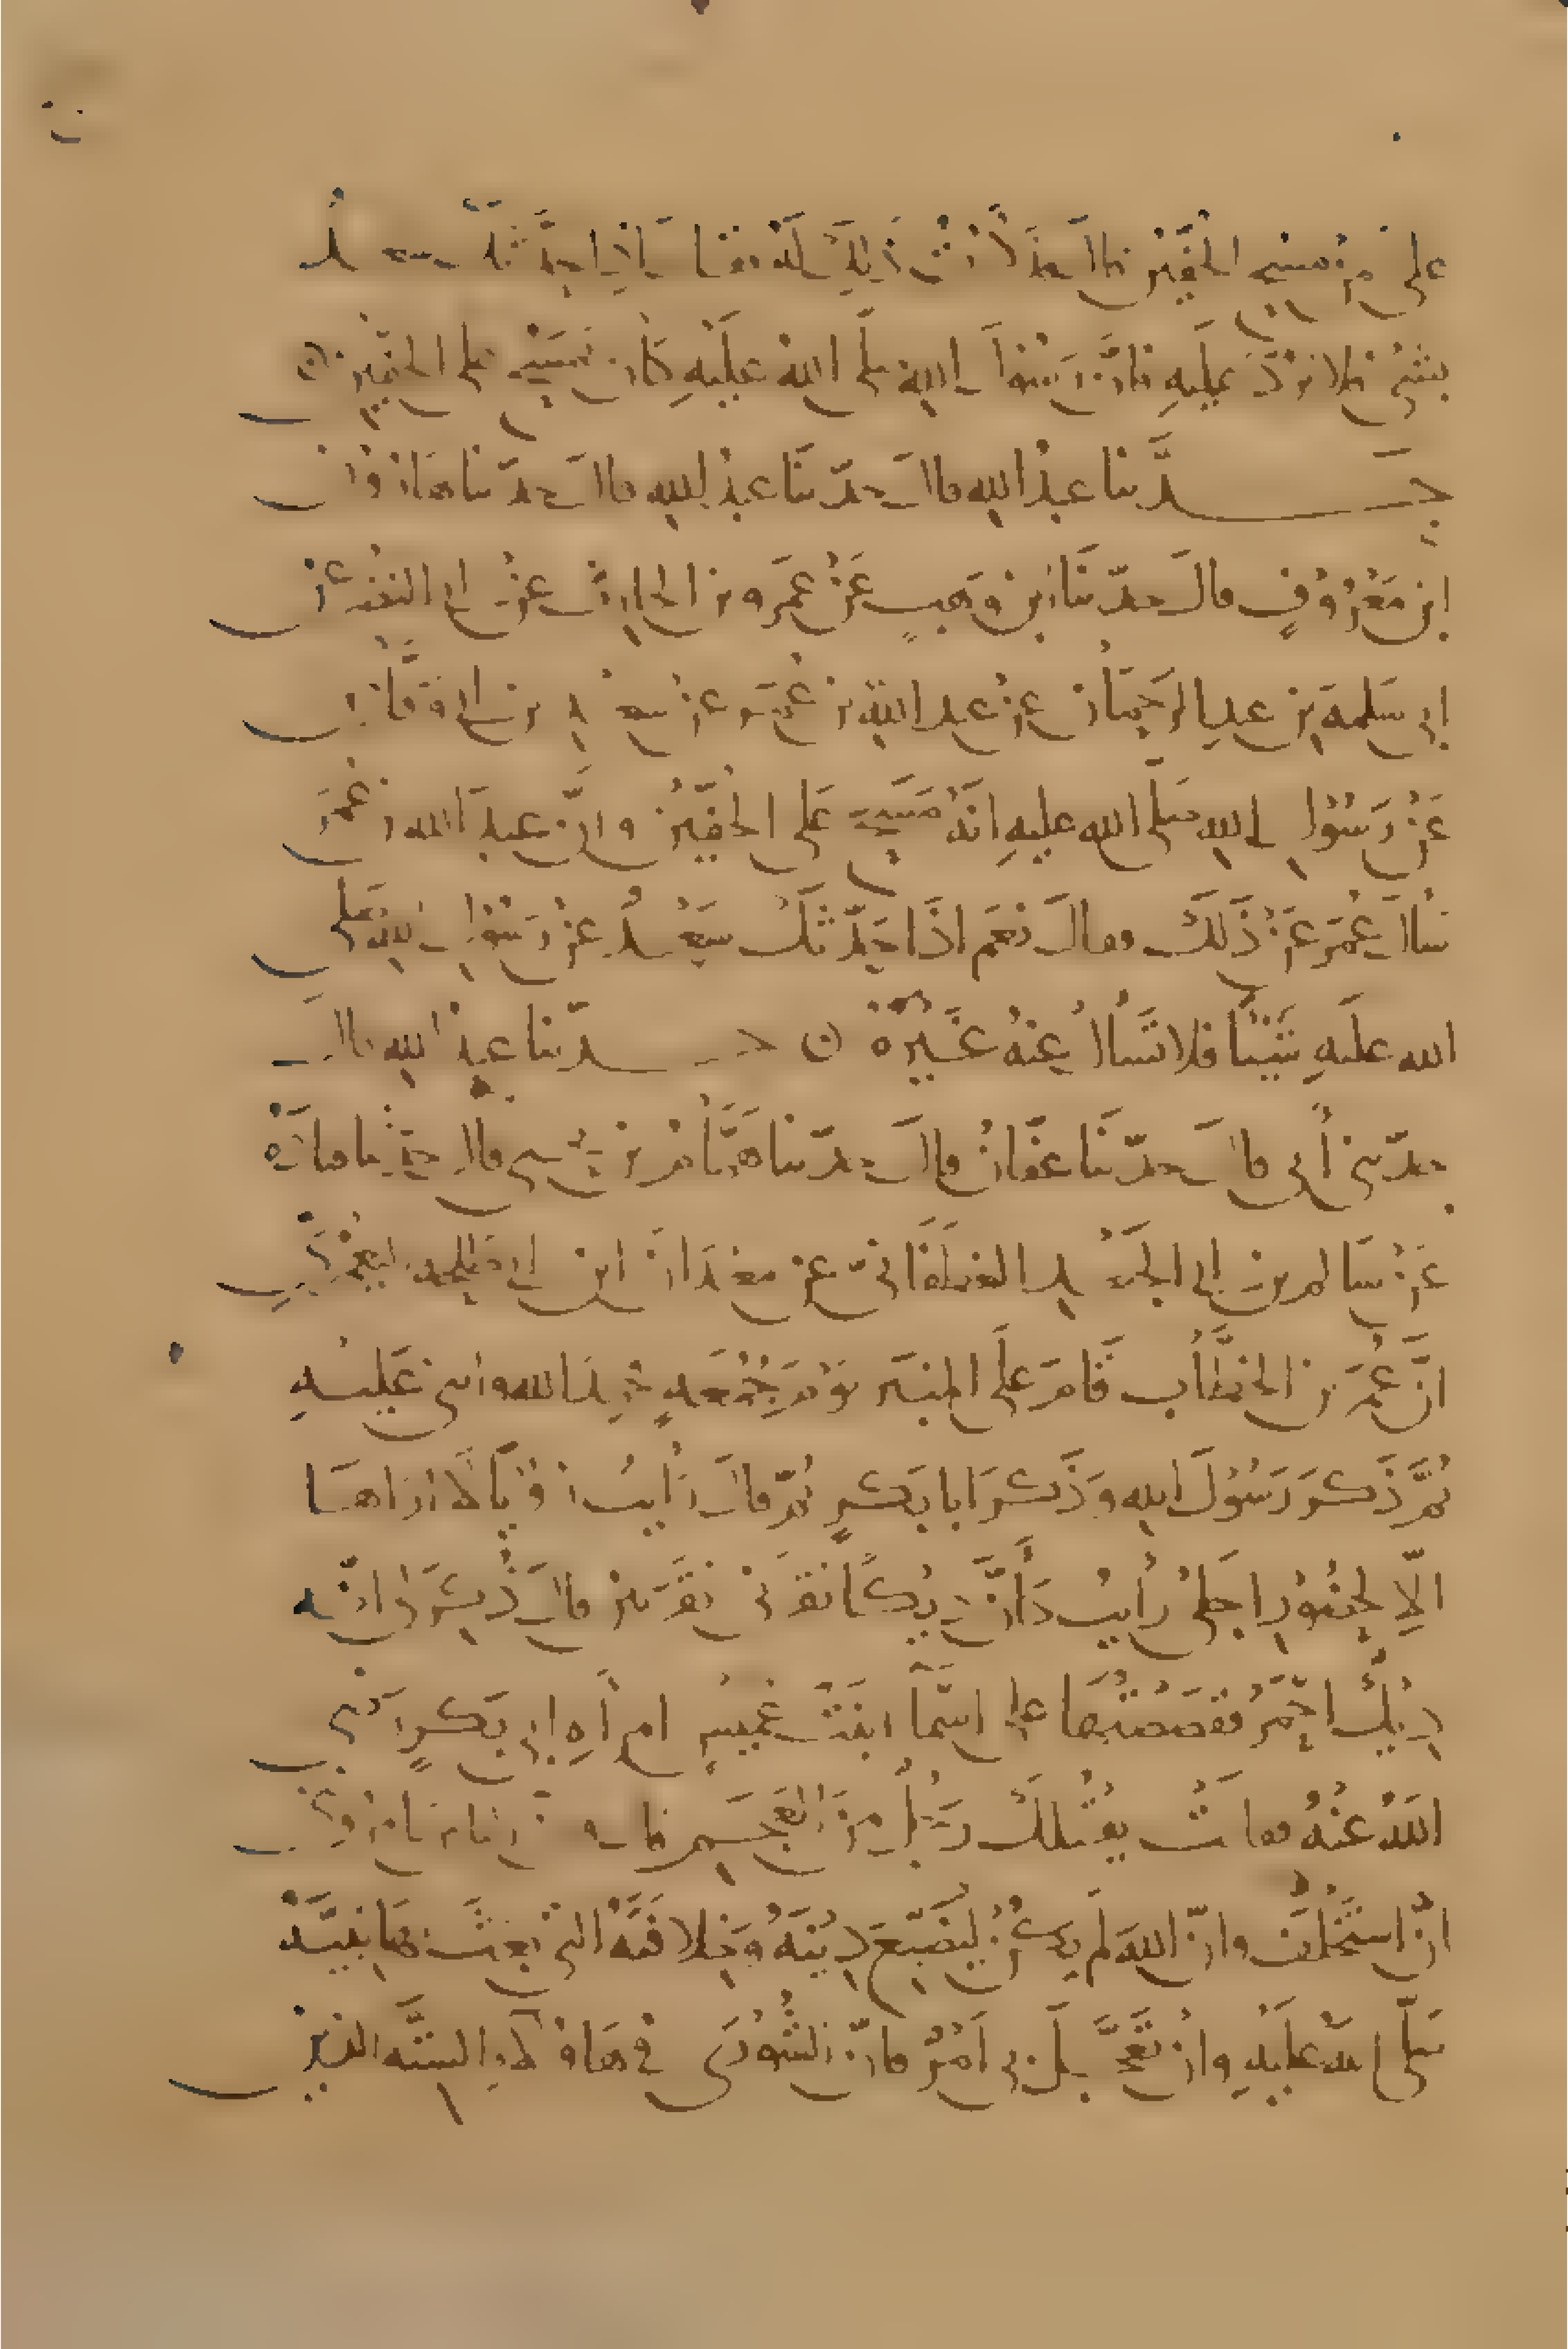 علي من مسح الخفين قال فذكرت ذلك له فقال اذا حدثك سعد
بشي فلا ترد عليه فان رسول الله صلى الله عليه كان يمسح على الخفين
حدثنا عبد الله قال حدثنا عبد الله قال حدثنا هارون
ابن معروف قال حدثنا ابن وهب عن عمرو بن الحارث عن ابي النضر عن
ابي سلمة بن عبد الرحمان عن عبد الله بن عمر عن سعد بن ابي وقاص
عن رسول الله صلى الله عليه انه مسح على الخفين وان عبد الله بن عمر
سال عمر عن ذلك فقال نعم اذا حدثك سعد عن رسول الله صلى
الله عليه شيئا فلا تسال عنه غيره حدثنا عبد الله قال
حدثني أبي قال حدثنا عفان قال حدثنا همام بن يحيى قال حدثنا قتادة
عن سالم بن ابي الجعد الغطفاني عن معدان ابن ابي طلحة اليعمري
ان عمر بن الخطاب قام على المنبر يوم جمعة فحمد الله واثنى عليه
ثم ذكر رسول الله وذكر ابا بكر ثم قال رايت رؤيا لا اراها
الا لحضور اجلي رأيت كأن ديكا نقرني نقرتين قال ذكر لي انه
ديك احمر فقصصتها على اسماء ابنت عميس امرأه ابي بكر رضي
الله عنه فقالت يقتلك رجل من العجم قال وان الناس يامرونني
ان استخلف وان الله لم يكن ليضيع دينه وخلافته التي بعث بها نبيه
صلى الله عليه وان تعجل بي امر فان الشورى في هاؤلاء الستة الذين